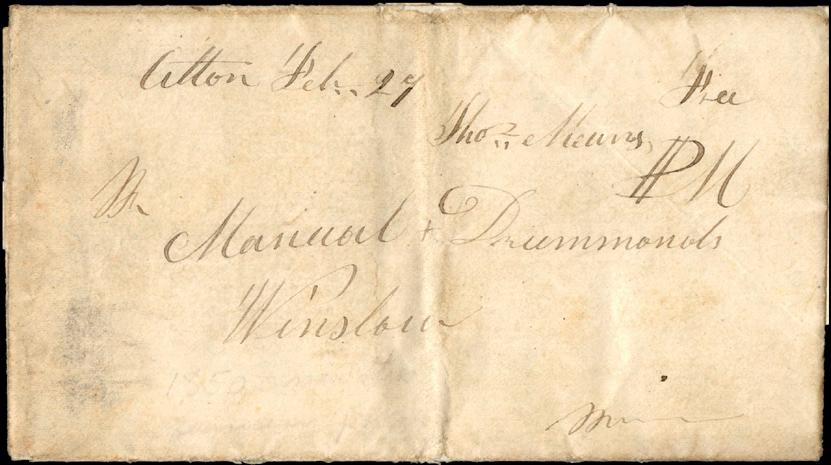 Alton Feb.. 27
Free
Thos Mears,
PM
Mr
Manual & Drummonds
Winslow